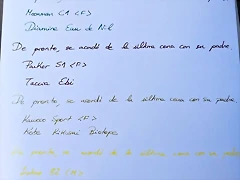 Moonman S1 <F>
Diamine Eau de Nil
De pronto, se acordó de la última cena con su padre.
Parker 51 <F>
Taccia Ebi
De pronto, se acordó de la última cena con su padre.
Kaweco Sport <F>
Kobe Kikumi Biotope
De pronto, se acordó de la última cena con su padre